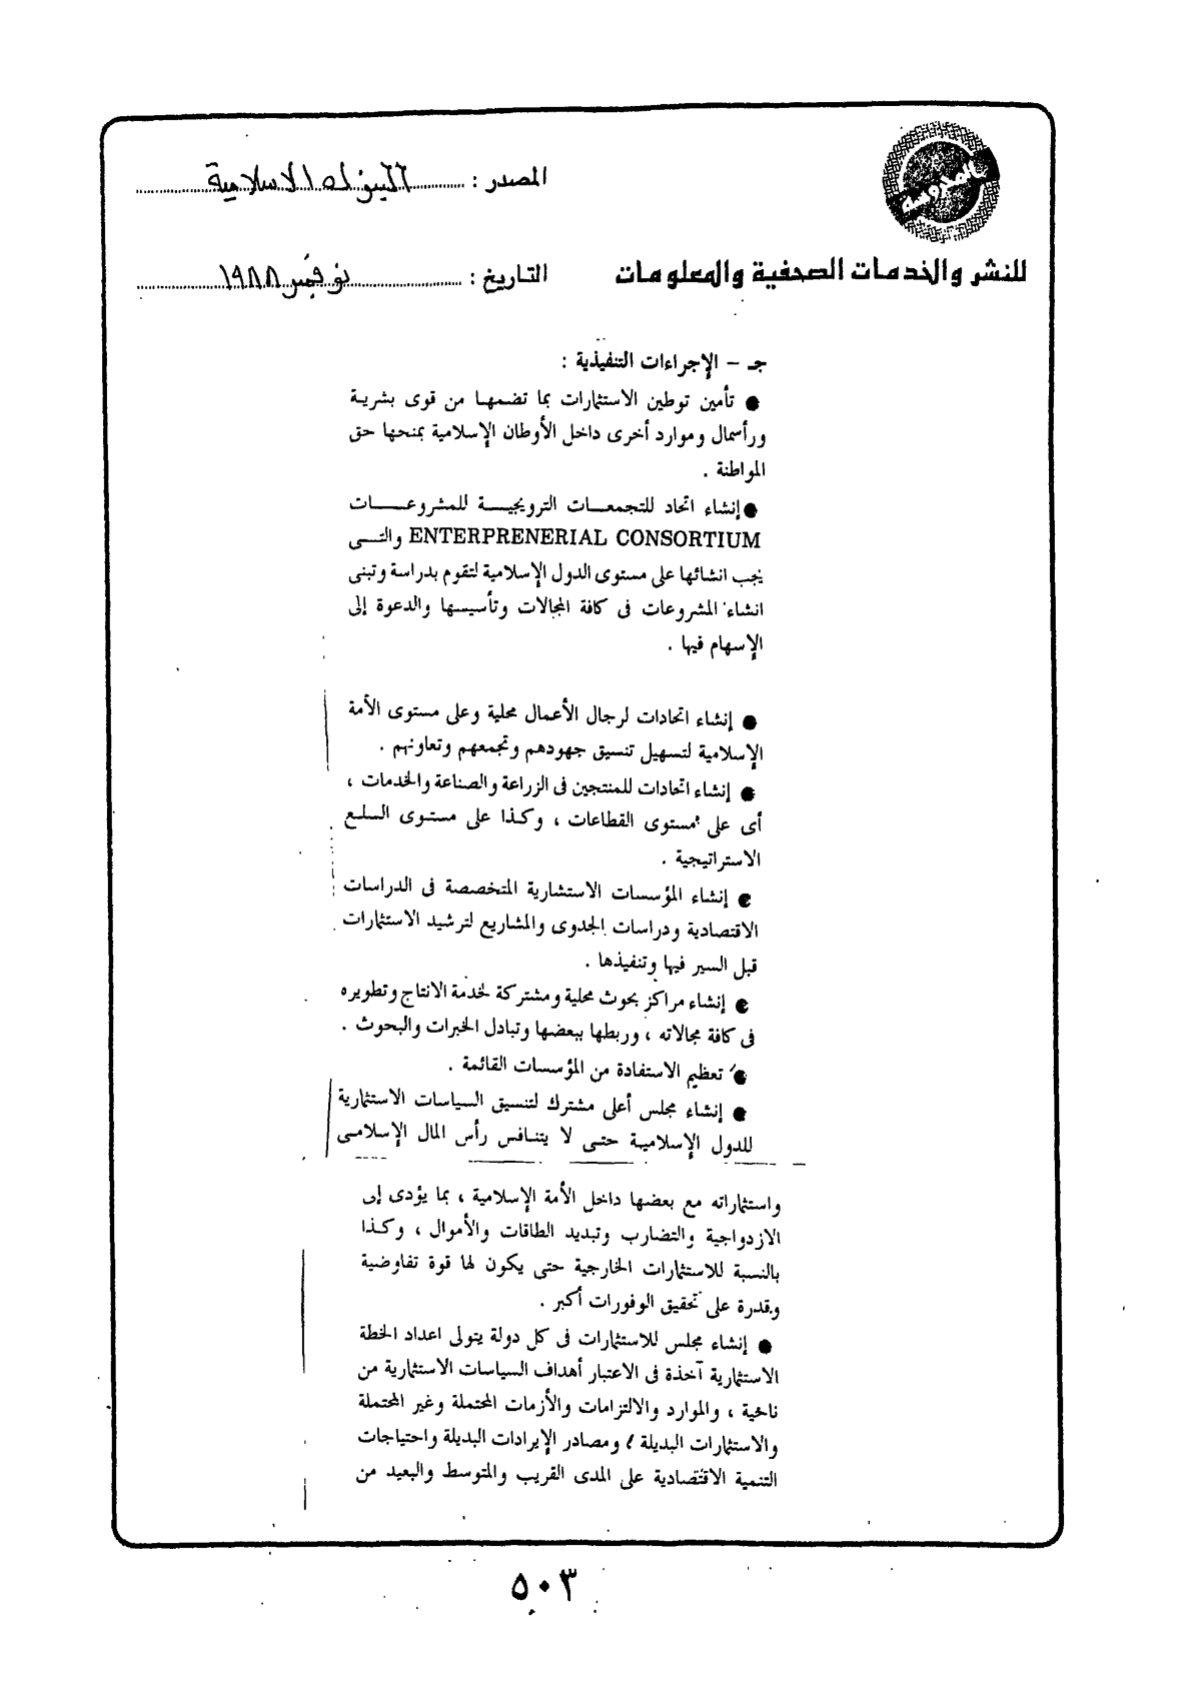 المصدر : البنوك الاسلامية
للنشر والخدمات الصحفية والمعلومات
التاريخ : نوفمبر ١٩٨٨
جـ - الإجراءات التنفيذية :
● تأمين توطين الاستثمارات بما تضمهـا من قوى بشريـة
ورأسمال وموارد أخرى داخل الأوطان الإسلامية بمنحها حق
المواطنة .
● إنشاء اتحاد للتجمعـات الترويجيـة للمشروعـات
ENTERPRENERIAL CONSORTIUM والتـى
يجب انشائها على مستوى الدول الإسلامية لتقوم بدراسة وتبنى
انشاء المشروعات فى كافة المجالات وتأسيسها والدعوة إلى
الإسهام فيها .
● إنشاء اتحادات لرجال الأعمال محلية وعلى مستوى الأمة
الإسلامية لتسهيل تنسيق جهودهم وتجمعهم وتعاونهم .
● إنشاء اتحادات للمنتجين فى الزراعة والصناعة والخدمات ،
أى على مستوى القطاعات ، وكـذا على مستـوى السلـع
الاستراتيجية .
● إنشاء المؤسسات الاستشارية المتخصصة فى الدراسات
الاقتصادية ودراسات الجدوى والمشاريع لترشيد الاستثمارات
قبل السير فيها وتنفيذها .
● إنشاء مراكز بحوث محلية ومشتركة لخدمة الانتاج وتطويره
فى كافة مجالاته ، وربطها ببعضها وتبادل الخبرات والبحوث .
● تعظيم الاستفادة من المؤسسات القائمة .
● إنشاء مجلس أعلى مشترك لتنسيق السياسات الاستثمارية
للدول الإسلاميـة حتـى لا يتنـافس رأس المال الإسلامـى
واستثماراته مع بعضها داخل الأمة الإسلامية ، بما يؤدى إلى
الازدواجية والتضارب وتبديد الطاقات والأموال ، وكـذا
بالنسبة للاستثمارات الخارجية حتى يكون لها قوة تفاوضية
وقدرة على تحقيق الوفورات أكبر .
● إنشاء مجلس للاستثمارات فى كل دولة يتولى اعداد الخطة
الاستثمارية آخذة فى الاعتبار أهداف السياسات الاستثمارية من
ناحية ، والموارد والالتزامات والأزمات المحتملة وغير المحتملة
والاستثمارات البديلة ، ومصادر الإيرادات البديلة واحتياجات
التنمية الاقتصادية على المدى القريب والمتوسط والبعيد من
٥٠٣